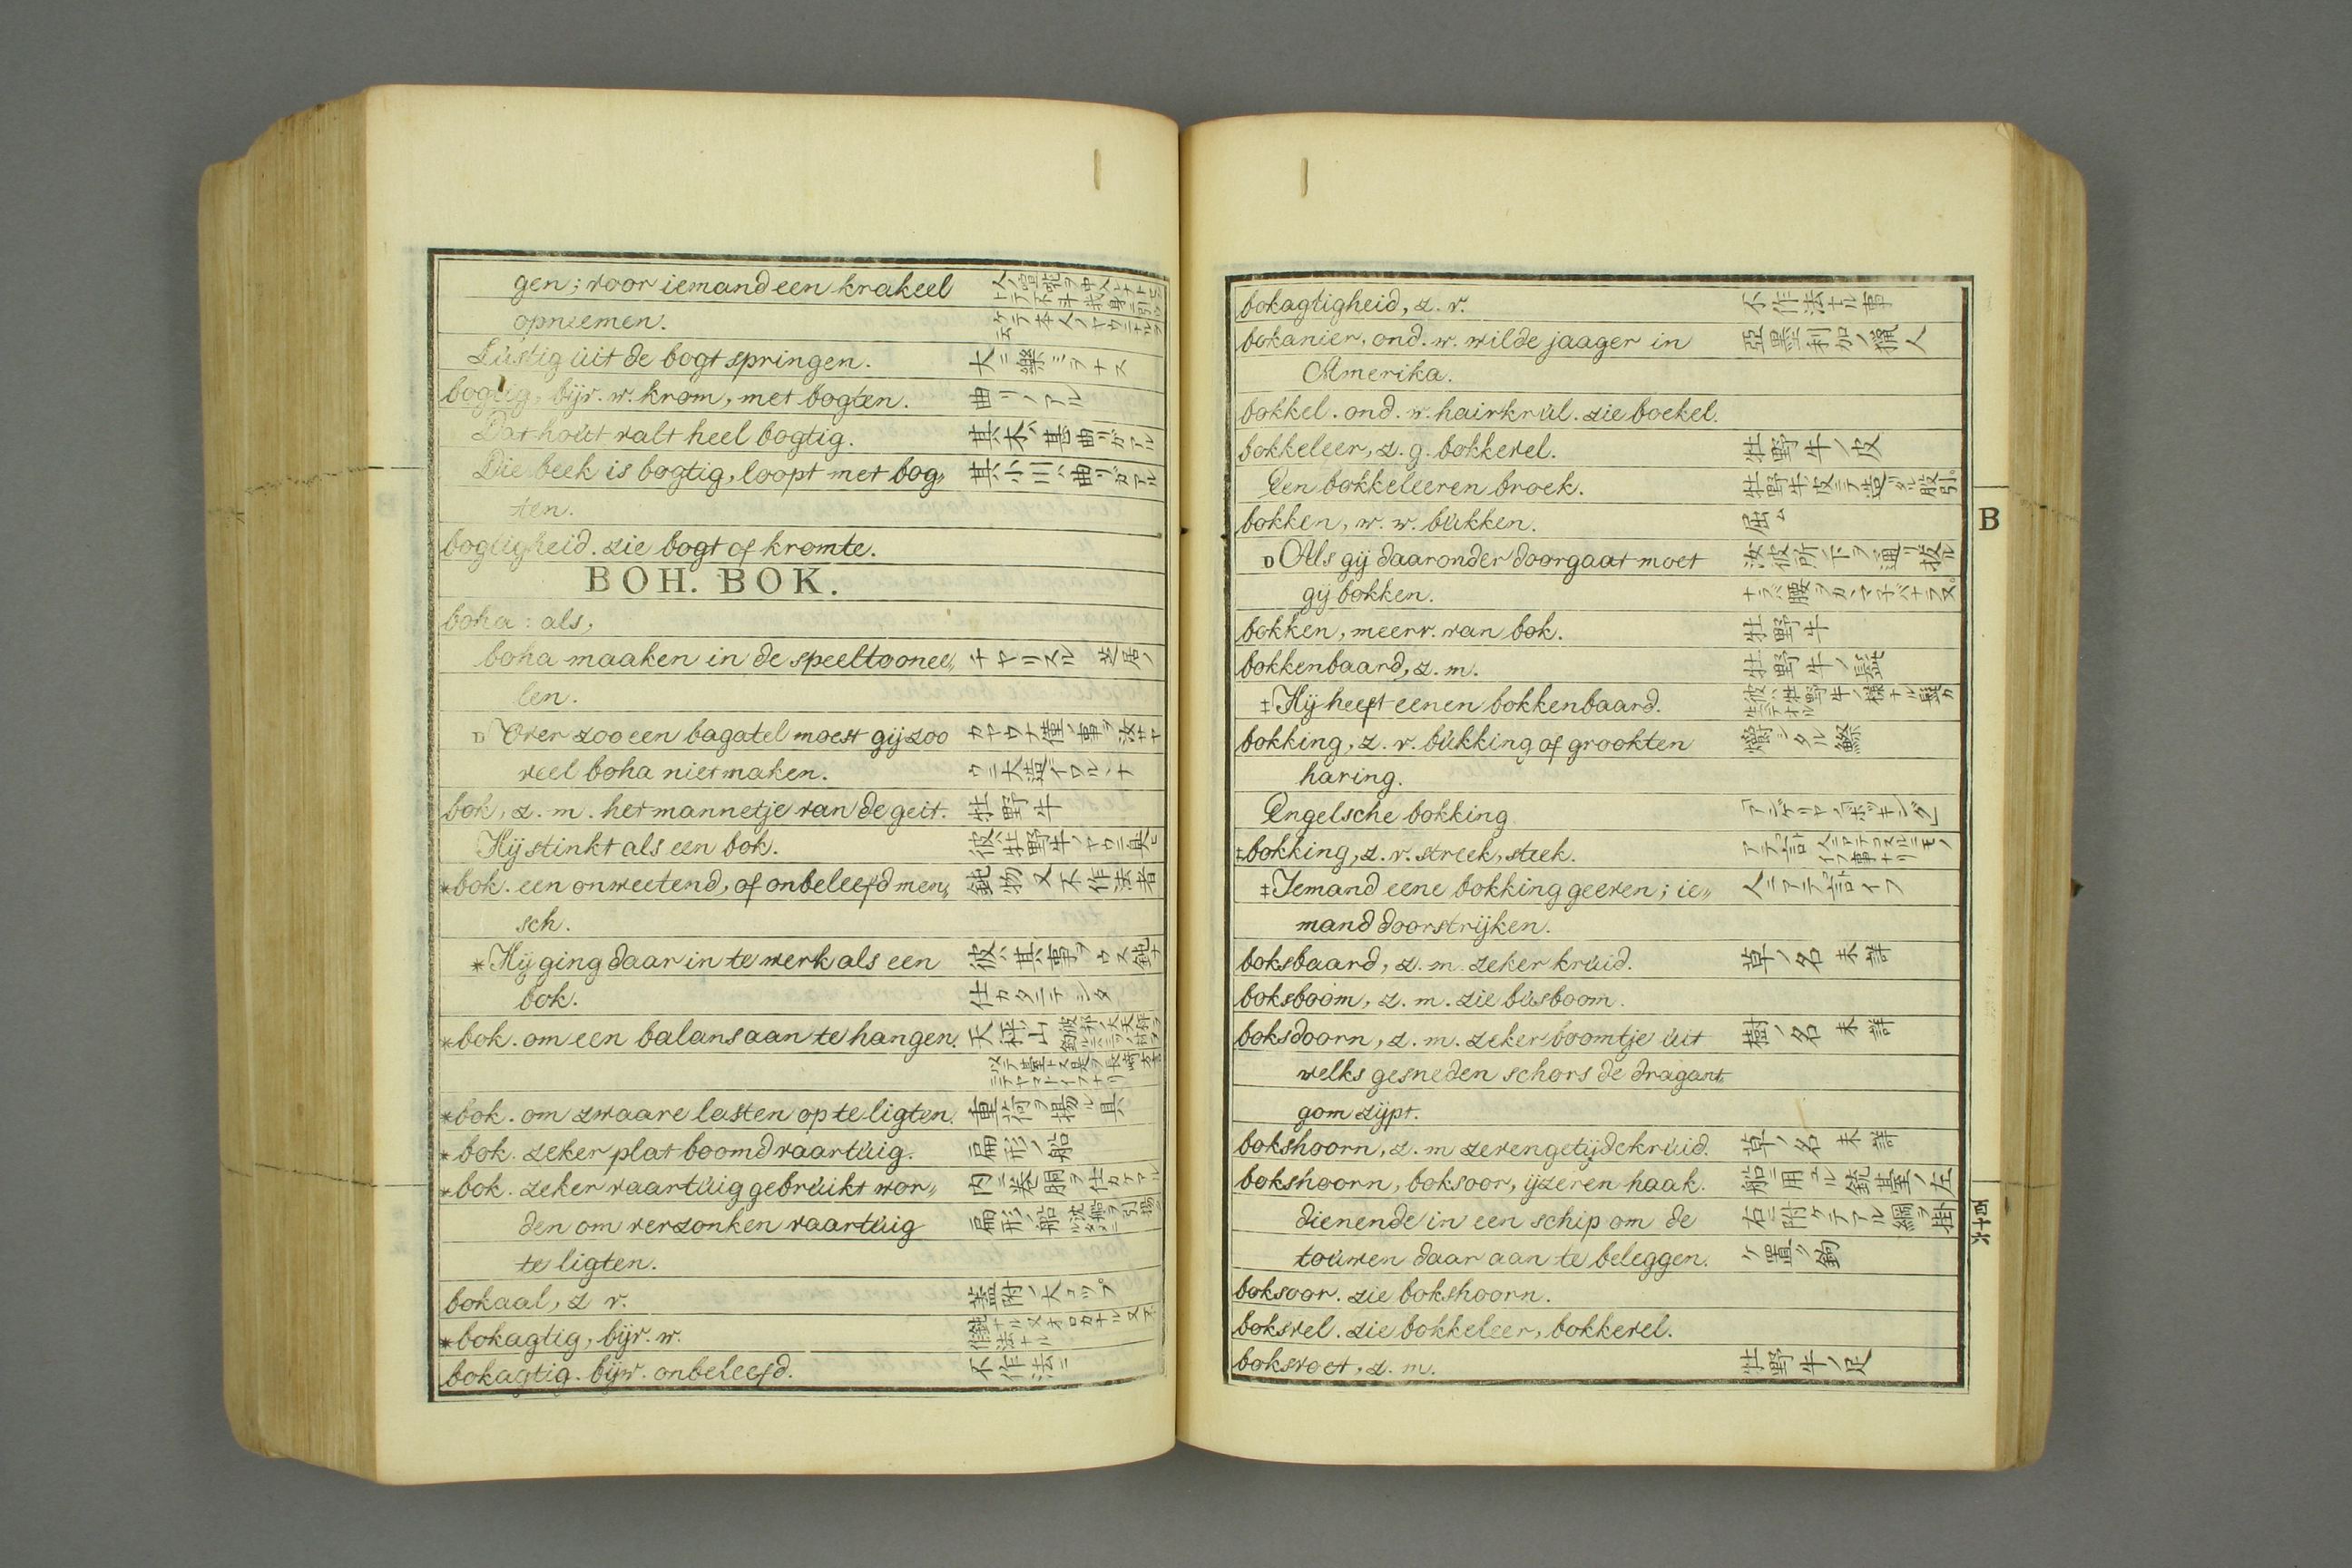 gen; voor iemand een krakeel
opneemen.
Lústig úit de bogt springen. 大ニ樂ミヲナス
bogtig, bijv. w. krom, met bogten. 曲リノアル
Dat hoút valt heel bogtig. 其木ハ甚曲リガアル
Die beek is bogtig, loopt met bog„ 其小川ハ曲リガアル
ten.
bogtigheid. zie bogt of kromte.
BOH. BOK.
boha: als,
boha maaken in de speeltoonee„ チヤリスル 芝居ノ
len.
D Over zoo een bagatel moest gij zoo
veel boha niet maken.
bok, z. m. het mannetje van de geit. 牡野牛
Hij stinkt als een bok. 彼ハ牡野牛ノヤウニ臭ヒ
*bok. een onweetend, of onbeleefd men„ 鈍物又不作法者
sch.
*Hij ging daar in te werk als een
bok. 仕カタニテシタ
*bok. om een balans aan te hangen. 天秤山
*bok. om zwaare lasten op te ligten. 重荷ヲ揚ル具
*bok. zeker plat boomd vaartúig. 扁形ノ船
*bok. zeker vaartúig gebrúikt wor„ 内ニ巻胴ヲ仕カケアル
den om verzonken vaartúig 扁形ノ船
te ligten.
bokaal, z v. 蓋附ノ大コップ
*bokagtig, bijv. w.
bokagtig. bijw. onbeleefd. 不作法ニ
bokagtigheid, z. v. 不作法ナル事
bokanier, ond. w. wilde jaager in 亞墨利加ノ猟人
Amerika.
bokkel. ond. w. hairkrúl. zie boekel.
bokkeleer, z. g. bokkevel. 牡野牛ノ皮
Een bokkeleeren broek. 牡野牛皮ニテ造リタル股引
bokken, w. w. búkken. 屈ム
D Als gij daaronder doorgaat moet 汝彼所ノ下ヲ通リ拔ル
gij bokken. ナラバ腰ヲカヾマネバナラヌ
bokken, meerv. van bok. 牡野牛
bokkenbaard, z. m. 牡野牛ノ髭
‡Hij heeft eenen bokkenbaard.
bokking, z. v. búkking of grookten
haring.
Engelsche bokking 「アンゲリヤ」「ボッキング」
‡bokking, z. v. streek, steek.
‡Iemand eene bokking geeven; ie„ 人ニアテ言イフ
mand doorstrijken.
boksbaard, z. m. zeker krúid. 草ノ名 未詳
boksboom, z. m. zie búsboom.
boksdoorn, z. m. zeker boomtje úit 樹ノ名 未詳
welks gesneden schors de dragant„
gom zijpt.
bokshoorn, z. m zevengetijdekrúid. 草ノ名 未詳
bokshoorn, boksoor, ijzeren haak. 船ニ用ユル銃臺ノ左
dienende in een schip om de 右ニ附ケテアル綱ヲ掛
toúwen daar aan te beleggen. ケ置ク鉤
boksoor. zie bokshoorn.
boksvel. zie bokkeleer, bokkevel.
boksvoet, z. m. 牡野牛ノ足
B
百十六